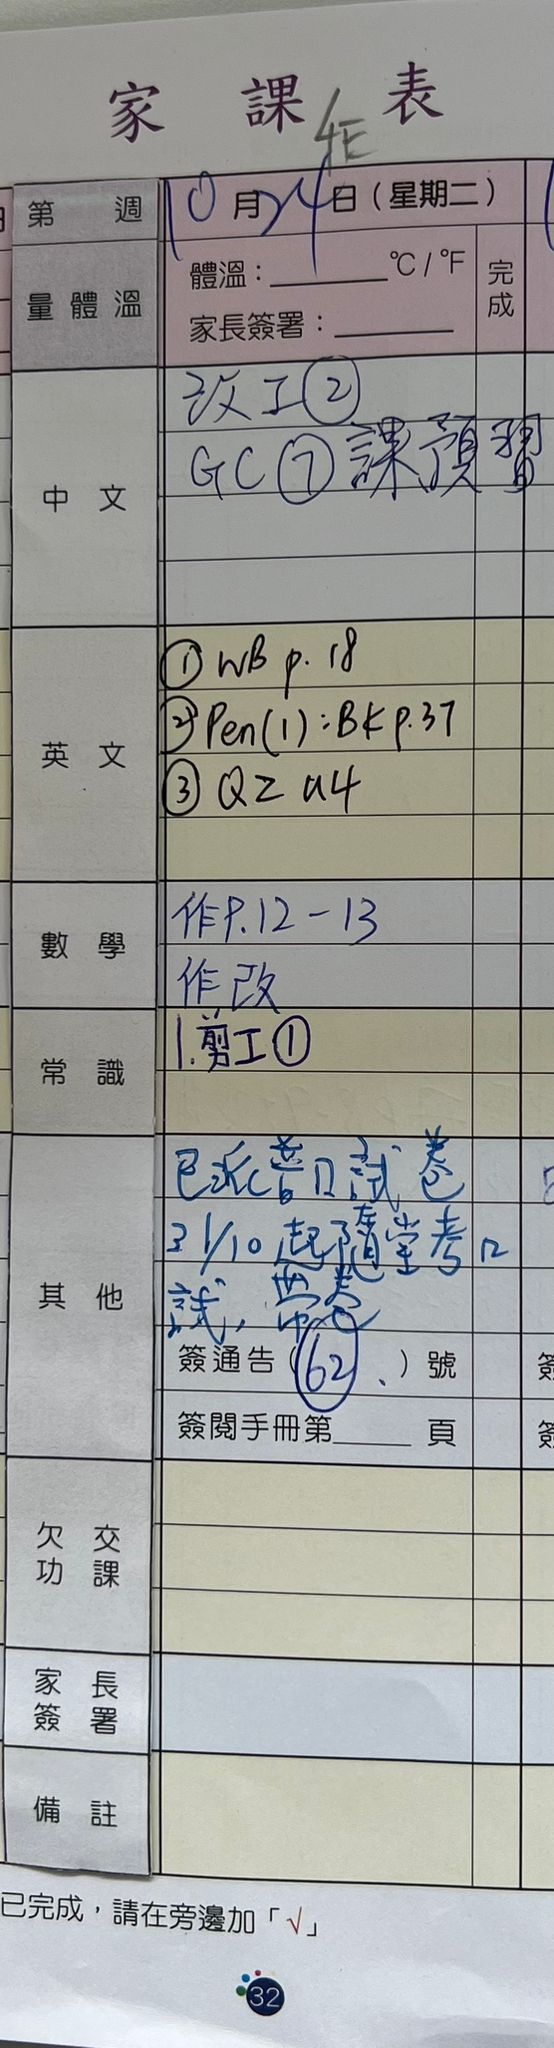 家課表
4E
第 週
10月24日（星期二）
量體溫
體溫：______°C / °F
家長簽署：______
完成
中文
改工②
GC⑦課預習
英文
① WB p. 18
② Pen(1):BK p.37
③ QZ U4
數學
作P.12-13
作改
常識
1.剪工①
其他
已派普口試卷
31/10起隨堂考口
試，帶卷
簽通告（62、）號
簽閱手冊第______頁
欠交功課
家長簽署
備註
已完成，請在旁邊加「√」
32